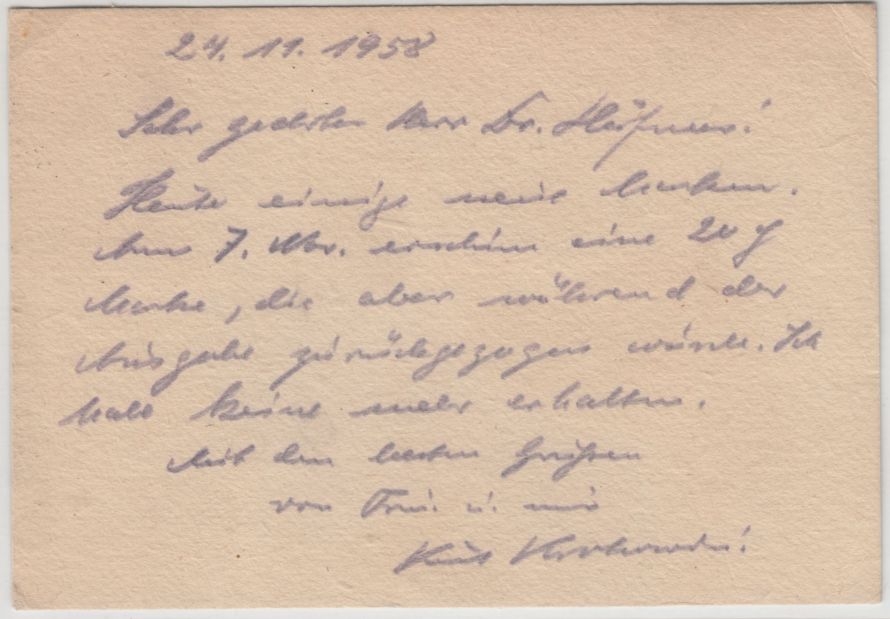 24. 11. 1958
Sehr geehrter Herr Dr. Häfner!
Heute einige neue Marken.
Am 7. Nov. erschien eine 20 Pf
Marke, die aber während der
Ausgabe zurückgezogen wurde. Ich
habe keine mehr erhalten.
Mit den besten Grüßen
von Frau u. mir
Kurt